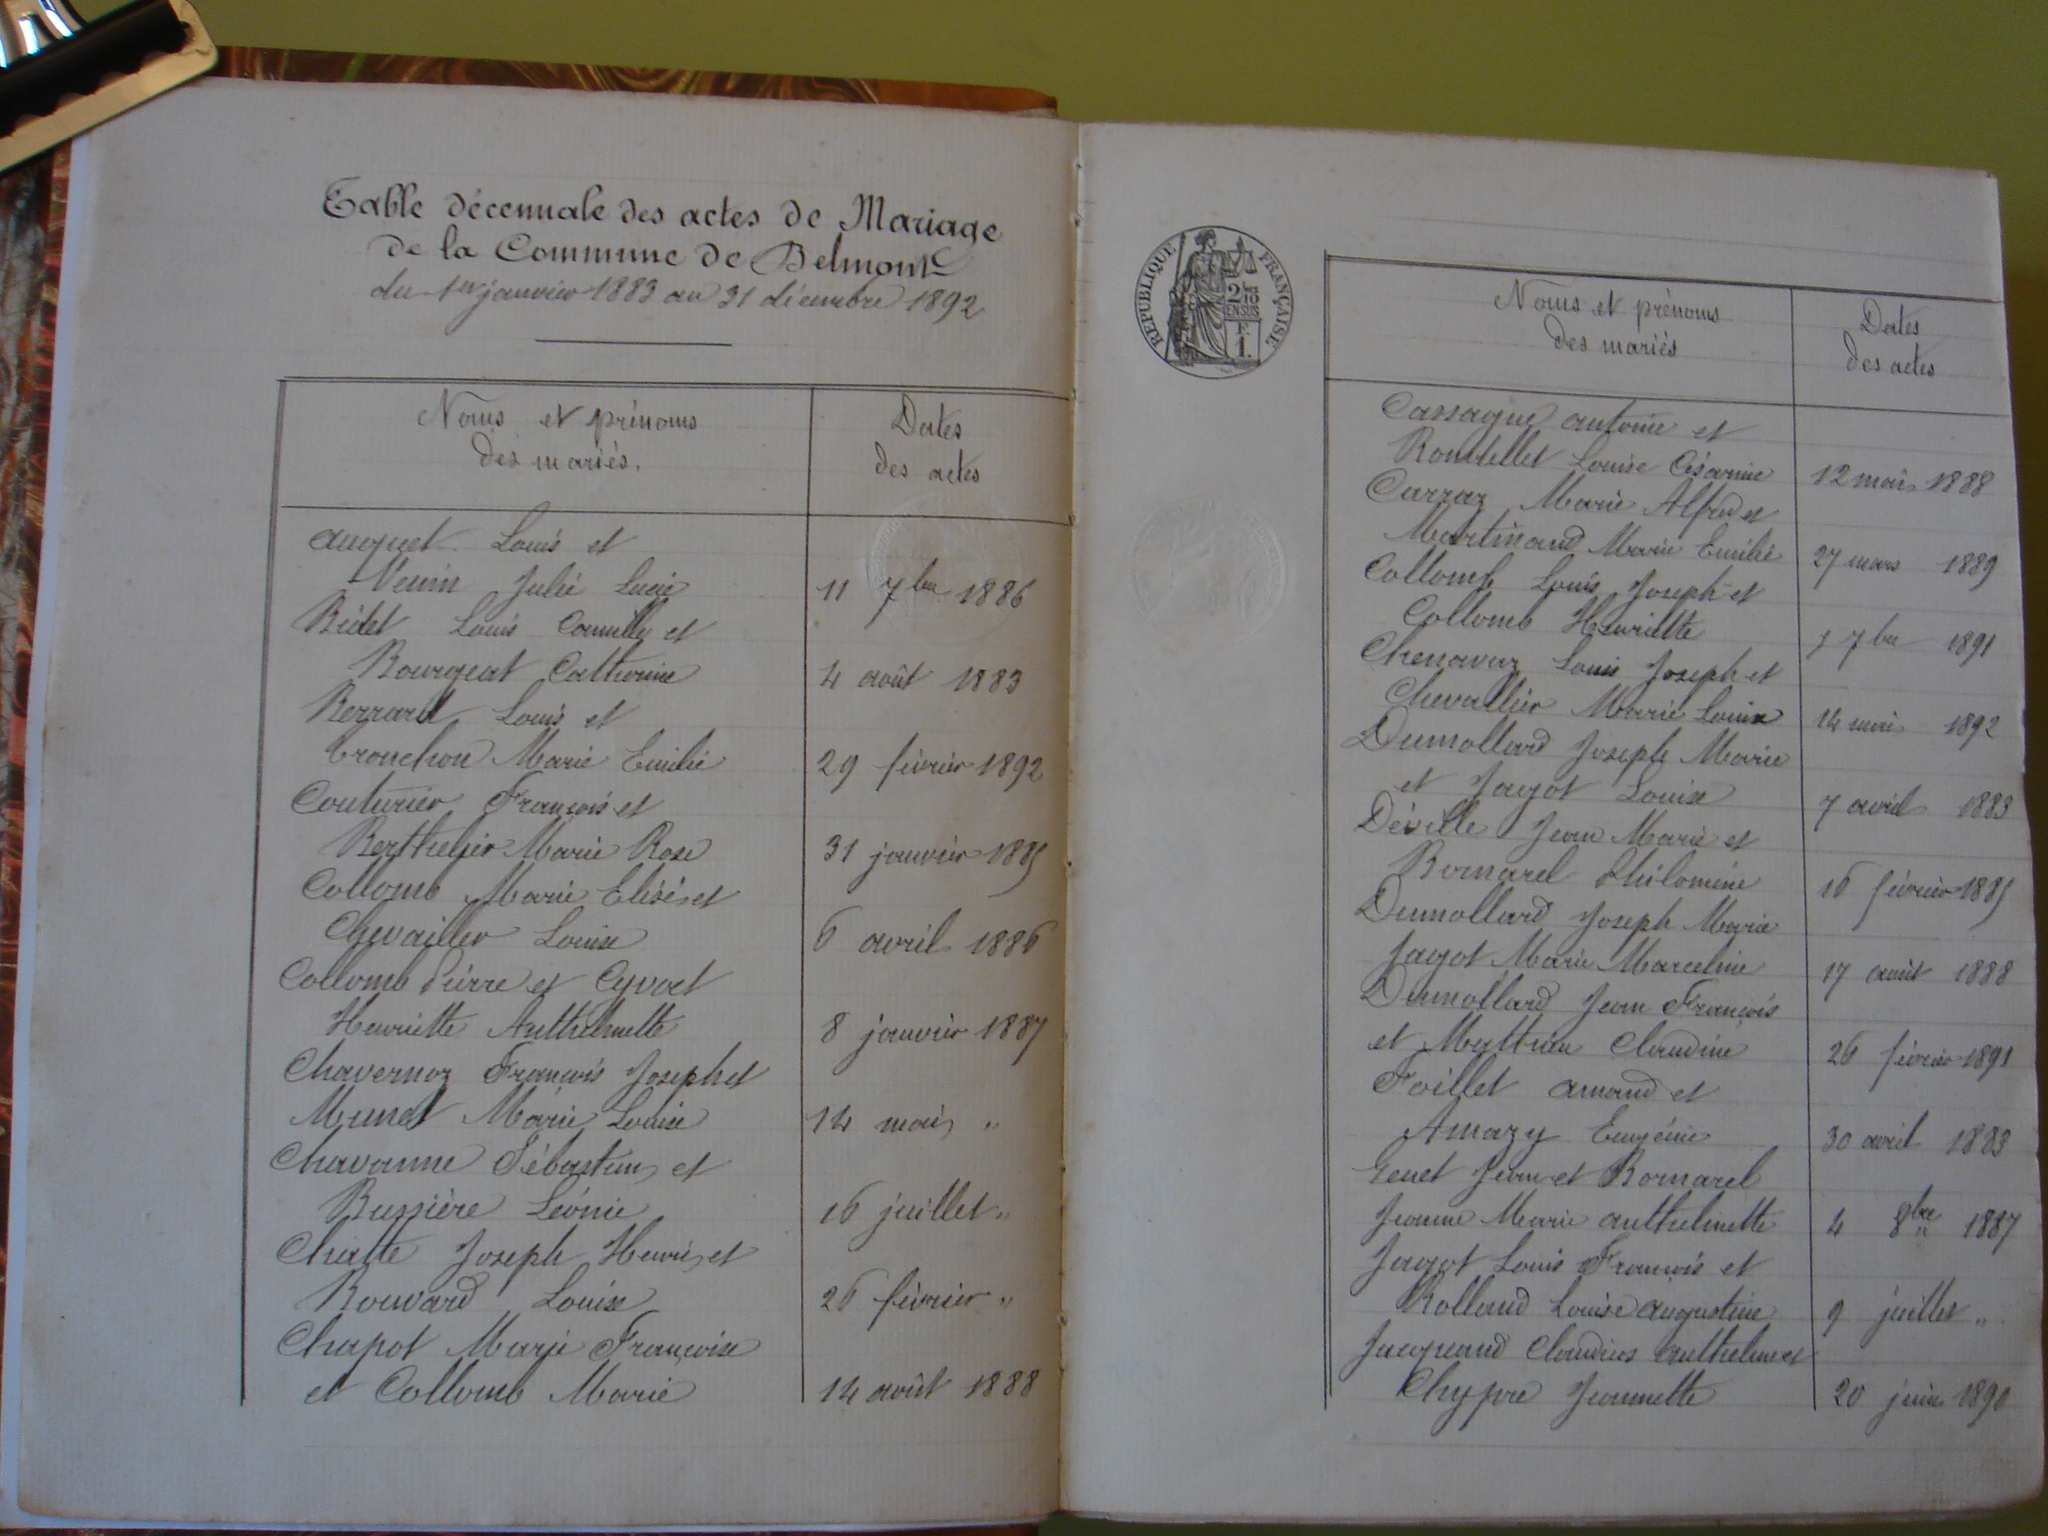 Table décennale des actes de Mariage
de la Commune de Belmont
du 1er janvier 1883 au 31 décembre 1892
Noms et prénoms
des mariés.
Dates
des actes
auquet Louis et
Neuin Julie Lucie 11 7bre 1886
Bidet Louis Camille et
Bourgeat Catherine 4 août 1883
Berrard Louis et
tronchon Marie Emilie 29 février 1892
Couturier François et
Berthelier Marie Rose 31 janvier 1885
Collomb Marie Elisé et
Chevailler Louise 6 avril 1886
Collomb Pierre et Cyvoct
Henriette Anthelmette 8 janvier 1887
Chavernoz François Joseph et
Munet Marie Louise 14 mai "
Chavanne Sébastien et
Bussière Léonie 16 juillet "
Chatte Joseph Henri et
Rouvard Louise 26 février "
Chapot Marie Françoise
et Collomb Marie 14 août 1888
REPUBLIQUE FRANÇAISE
2/10
EN SUS
F.
1.
Noms et prénoms
des mariés
Dates
des actes
Cassagne antoine et
Rontellet Louise Césarine 12 mai 1888
Carraz Marie Alfred et
Martinand Marie Emilie 27 mars 1889
Collomb Louis Joseph et
Collomb Henriette 7bre 1891
Chenavaz Louis Joseph et
Chevallier Marie Louise 14 mai 1892
Dumollard Joseph Marie
et Jagot Louise 7 avril 1883
Déville Jean Marie et
Bornarel Philomène 16 février 1885
Dumollard Joseph Marie
Jagot Marie Marceline 17 août 1888
Dumollard Jean François
et Mathieu Claudine 26 février 1891
Foillet amand et
Amazy Eugénie 30 avril 1883
Genet Jean et Bornarel
Jeanne Marie anthelmette 4 8bre 1887
Jagot Louis François et
Rolland Louise augustine 9 juillet "
Jacquand Claudius anthelme et
Chypre Jeannette 20 juin 1890